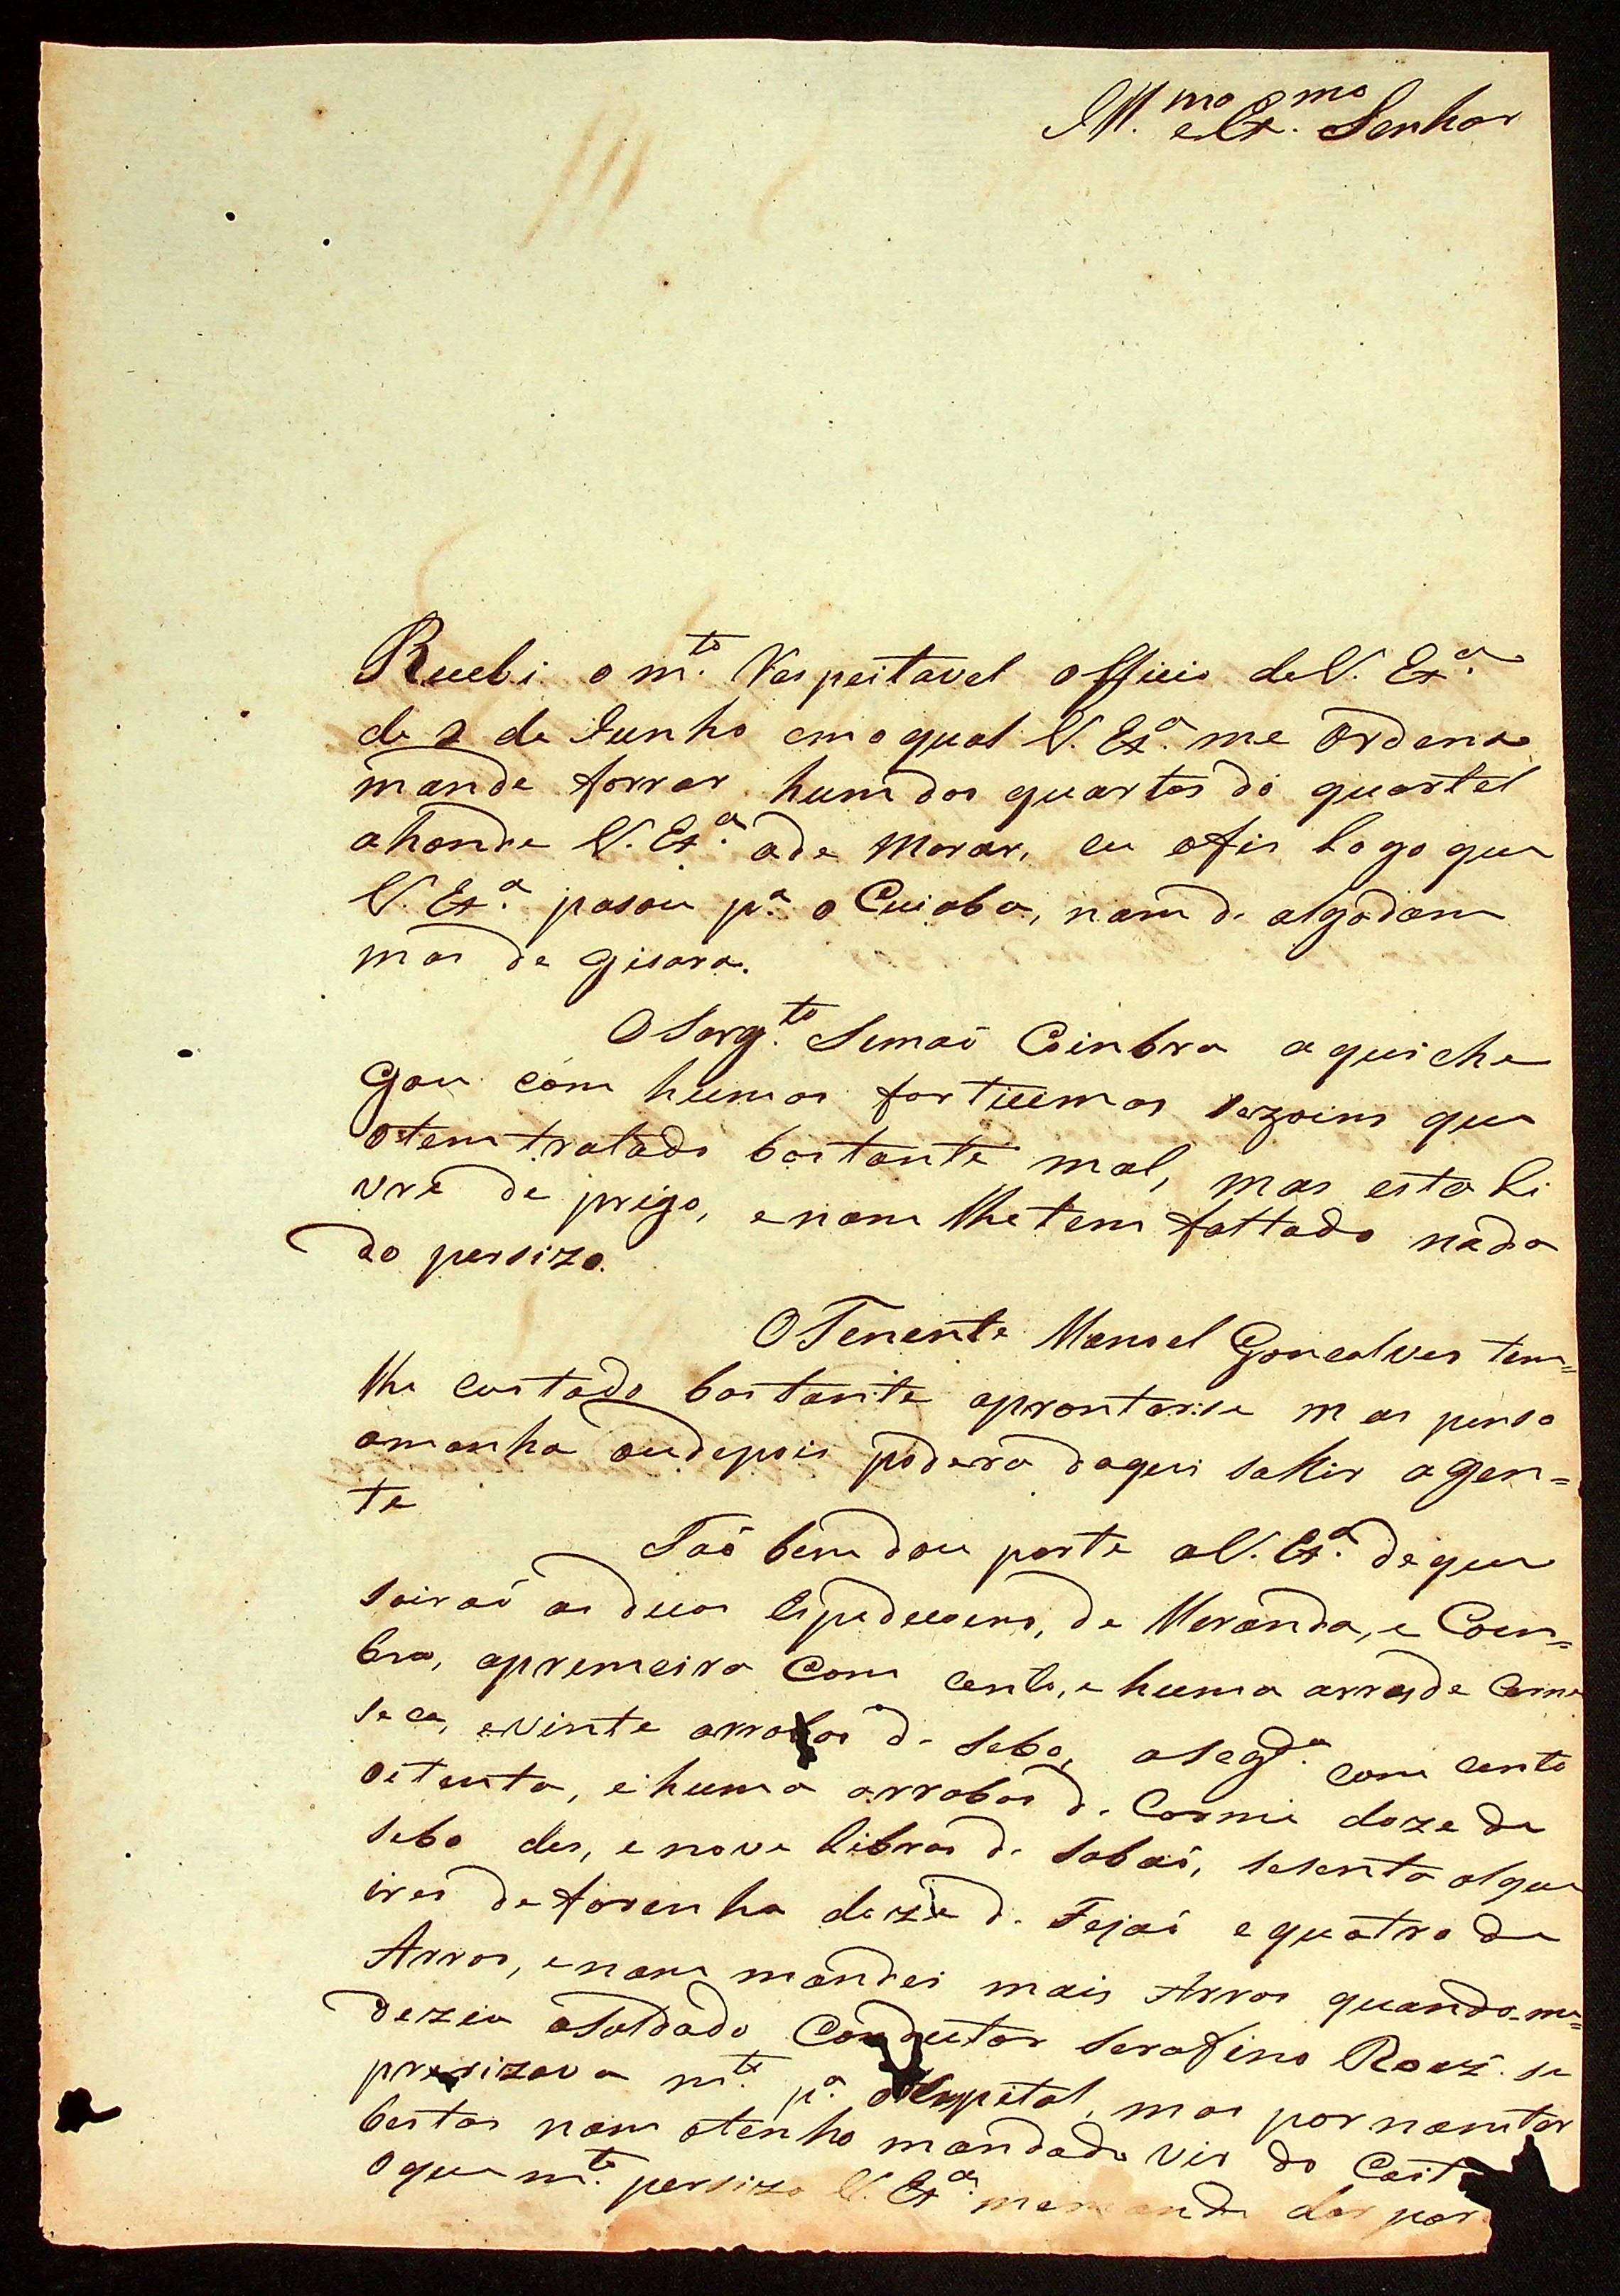 Ill.mo e Ex.mo Senhor
Recebi o m.to Respeitavel officio de V. Ex.a
de 2 de Junho em o qual V. Ex.a me Ordena
mande forrar hum dos quartos do quartel
ahonde V. Ex.a ade Morar, eu ofis logo que
V. Ex.a pasou p.a o Cuiaba, nam d. algodam
mas de gisara.
O Sarg.to Simaõ Coinbra aqui che
gou com humas forticimas sezoins que
otem tratado bastante mal, mas esta li
vre de prigo, e nam lhe tem faltado nada
do persizo.
O Tenente Manoel Goncalves tem=
lhe custado bastante aprontarse mas penso
amanha ou depois podera daqui sahir agen=
te
Taõ bem dou parte a V. Ex.a de que
sairaõ as duas Espedicoens, de Meranda, e Coen=
bra, apremeira Com cento, e huma arras de Carne
seca, e vinte arrobas d. sebo, a seg.da com cento
oitenta, e huma arrobas d. Carne doze de
sebo des, e nove libras d. sabaõ, sesenta alque
ires de farinha doze d. Fejaõ e quatro de
Arros, e nam mandei mais Arros quando-me=
dezia o Soldado Condutor Serafino Roiz. se
prexizava m.to p.a o Hospital, mas por nam ter
bestas nam otenho mandado vir do
o que m.to persizo V. Ex.a me mande dar por